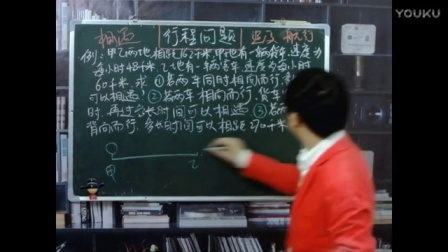 YOUKU
相遇 行程问题 追及 航行
例:甲乙两地相距162千米,甲地有一辆货车,速度为
每小时48千米,乙地有一辆客车,速度为每小时
60千米,求①若两车同时相向而行,
可以相遇,②若两车相向而行,货车
时,再过多长时间可以相遇,③若两
背向而行,多长时间可以相距270千米
甲 乙